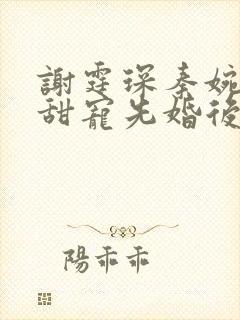 謝霆琛秦婉
甜寵先婚後
陽乖乖